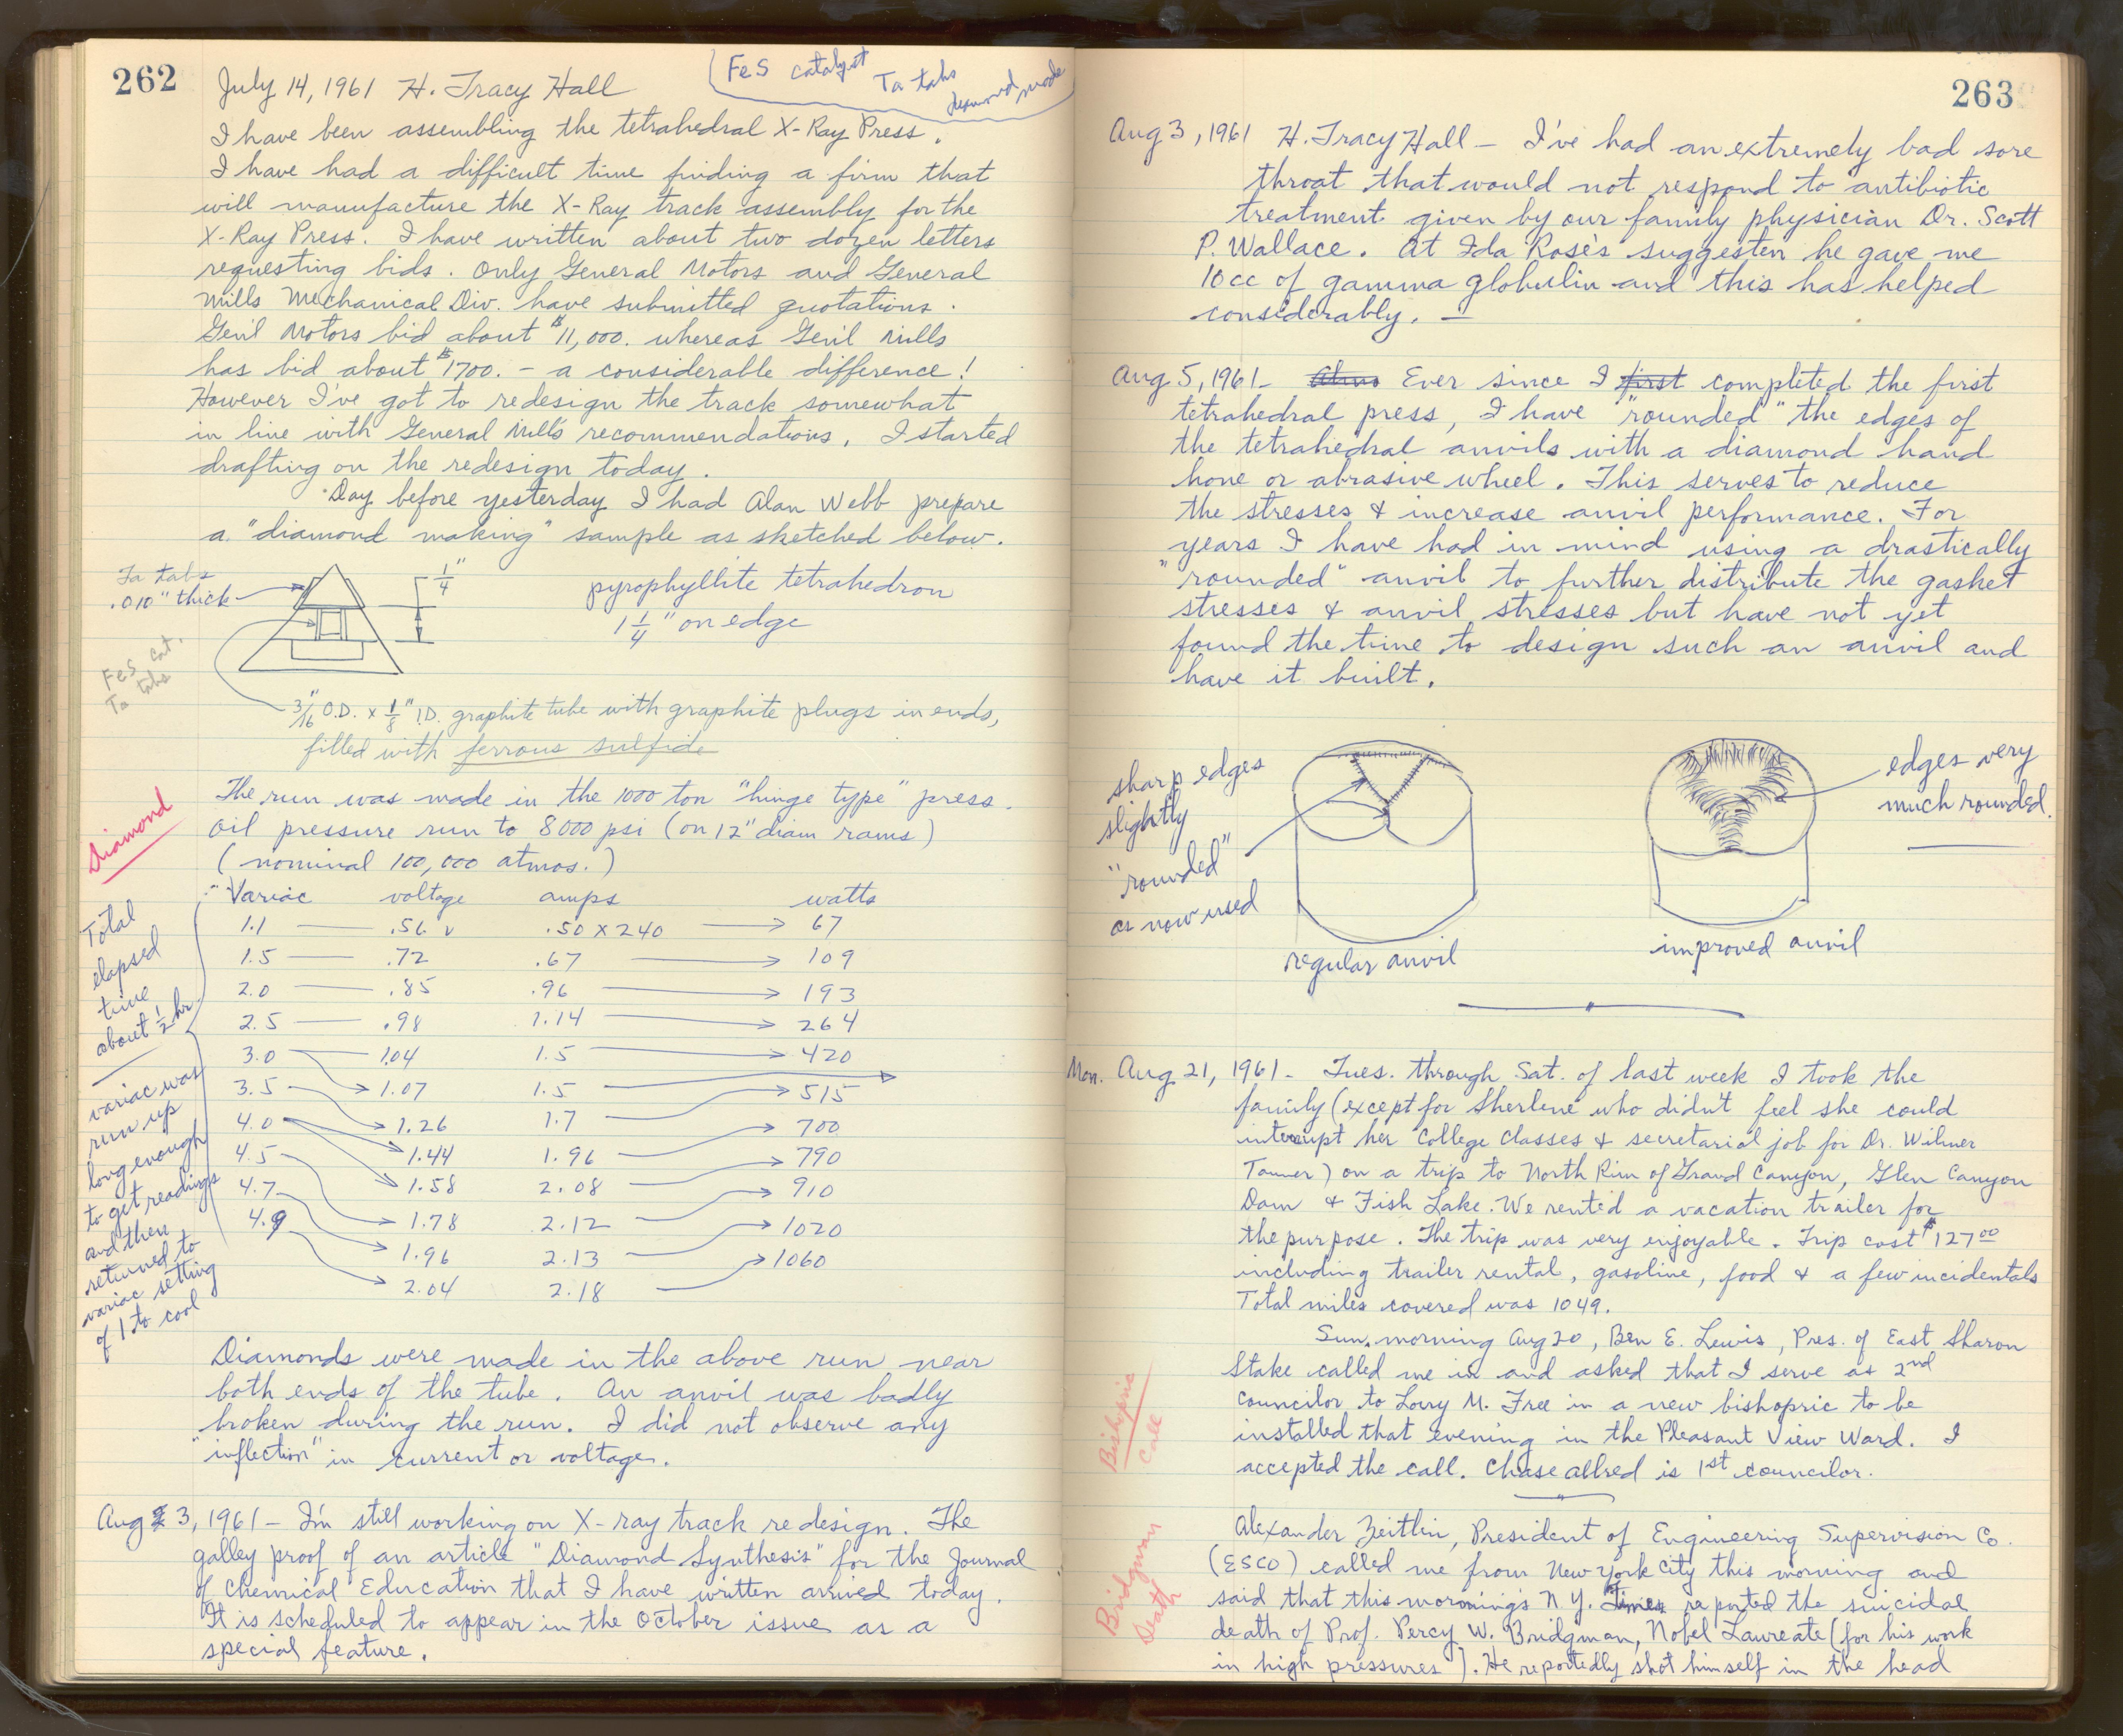 262
FeS catalyst
Ta tabs
diamond made
July 14, 1961 H. Tracy Hall
I have been assembling the tetrahedral X-Ray Press.
I have had a difficult time finding a firm that
will manufacture the X-Ray track assembly for the
X-Ray Press. I have written about two dozen letters
requesting bids. Only General Motors and General
Mills Mechanical Div. have submitted quotations.
Gen'l Motors bid about $11,000. whereas Gen'l Mills
has bid about $1700. - a considerable difference!
However I've got to redesign the track somewhat
in line with General Mills recommendations. I started
drafting on the redesign today.
Day before yesterday I had Alan Webb prepare
a "diamond making" sample as sketched below.
Ta tabs
.010" thick
1/4"
pyrophyllite tetrahedron
1 1/4" on edge
FeS cat.
Ta tabs
3/16" O.D. x 1/8" I.D. graphite tube with graphite plugs in ends,
filled with ferrous sulfide
Diamond
The run was made in the 1000 ton "hinge type" press.
Oil pressure run to 8000 psi (on 12" diam rams)
(nominal 100,000 atmos.)
Variac voltage amps watts
1.1 .56 v .50 x 240 67
1.5 .72 .67 109
2.0 .85 .96 193
2.5 .98 1.14 264
3.0 1.04 1.5 420
3.5 1.07 1.5 515
4.0 1.26 1.7 700
4.5 1.44 1.96 790
4.7 1.58 2.08 910
4.9 1.78 2.12 1020
1.96 2.13 1060
2.04 2.18
Total
elapsed
time
about 1/2 hr.
variac was
run up
long enough
to get readings
and then
returned to
variac setting
of 1 to cool
Diamonds were made in the above run near
both ends of the tube. An anvil was badly
broken during the run. I did not observe any
"inflection" in current or voltage.
Aug 3, 1961 - I'm still working on X-ray track redesign. The
galley proof of an article "Diamond Synthesis" for the Journal
of Chemical Education that I have written arrived today.
It is scheduled to appear in the October issue as a
special feature.
263
Aug 3, 1961 H. Tracy Hall - I've had an extremely bad sore
throat that would not respond to antibiotic
treatment given by our family physician Dr. Scott
P. Wallace. At Ida Rose's suggesten he gave me
10cc of gamma globulin and this has helped
considerably. -
Aug 5, 1961 - Ever since I first completed the first
tetrahedral press, I have "rounded" the edges of
the tetrahedral anvils with a diamond hand
hone or abrasive wheel. This serves to reduce
the stresses & increase anvil performance. For
years I have had in mind using a drastically
"rounded" anvil to further distribute the gasket
stresses & anvil stresses but have not yet
found the time to design such an anvil and
have it built.
sharp edges
slightly
"rounded"
as now used
regular anvil
edges very
much rounded.
improved anvil
Mon. Aug 21, 1961 - Tues. through Sat. of last week I took the
family (except for Sherlene who didn't feel she could
interrupt her College Classes & secretarial job for Dr. Wilmer
Tanner) on a trip to North Rim of Grand Canyon, Glen Canyon
Dam & Fish Lake. We rented a vacation trailer for
the purpose. The trip was very enjoyable. Trip cost $127.00
including trailer rental, gasoline, food & a few incidentals
Total miles covered was 1049.
Sun. morning Aug 20, Ben E. Lewis, Pres. of East Sharon
Stake called me in and asked that I serve as 2nd
councilor to Lowy M. Free in a new bishopric to be
installed that evening in the Pleasant View Ward. I
accepted the call. Chase Allred is 1st councilor.
Bishopric
Call
Alexander Zeitlin, President of Engineering Supervision Co.
(ESCO) called me from New York City this morning and
said that this mornings N.Y. Times reported the suicidal
death of Prof. Percy W. Bridgman, Nobel Laureate (for his work
in high pressures). He reportedly shot himself in the head
Bridgman
Death